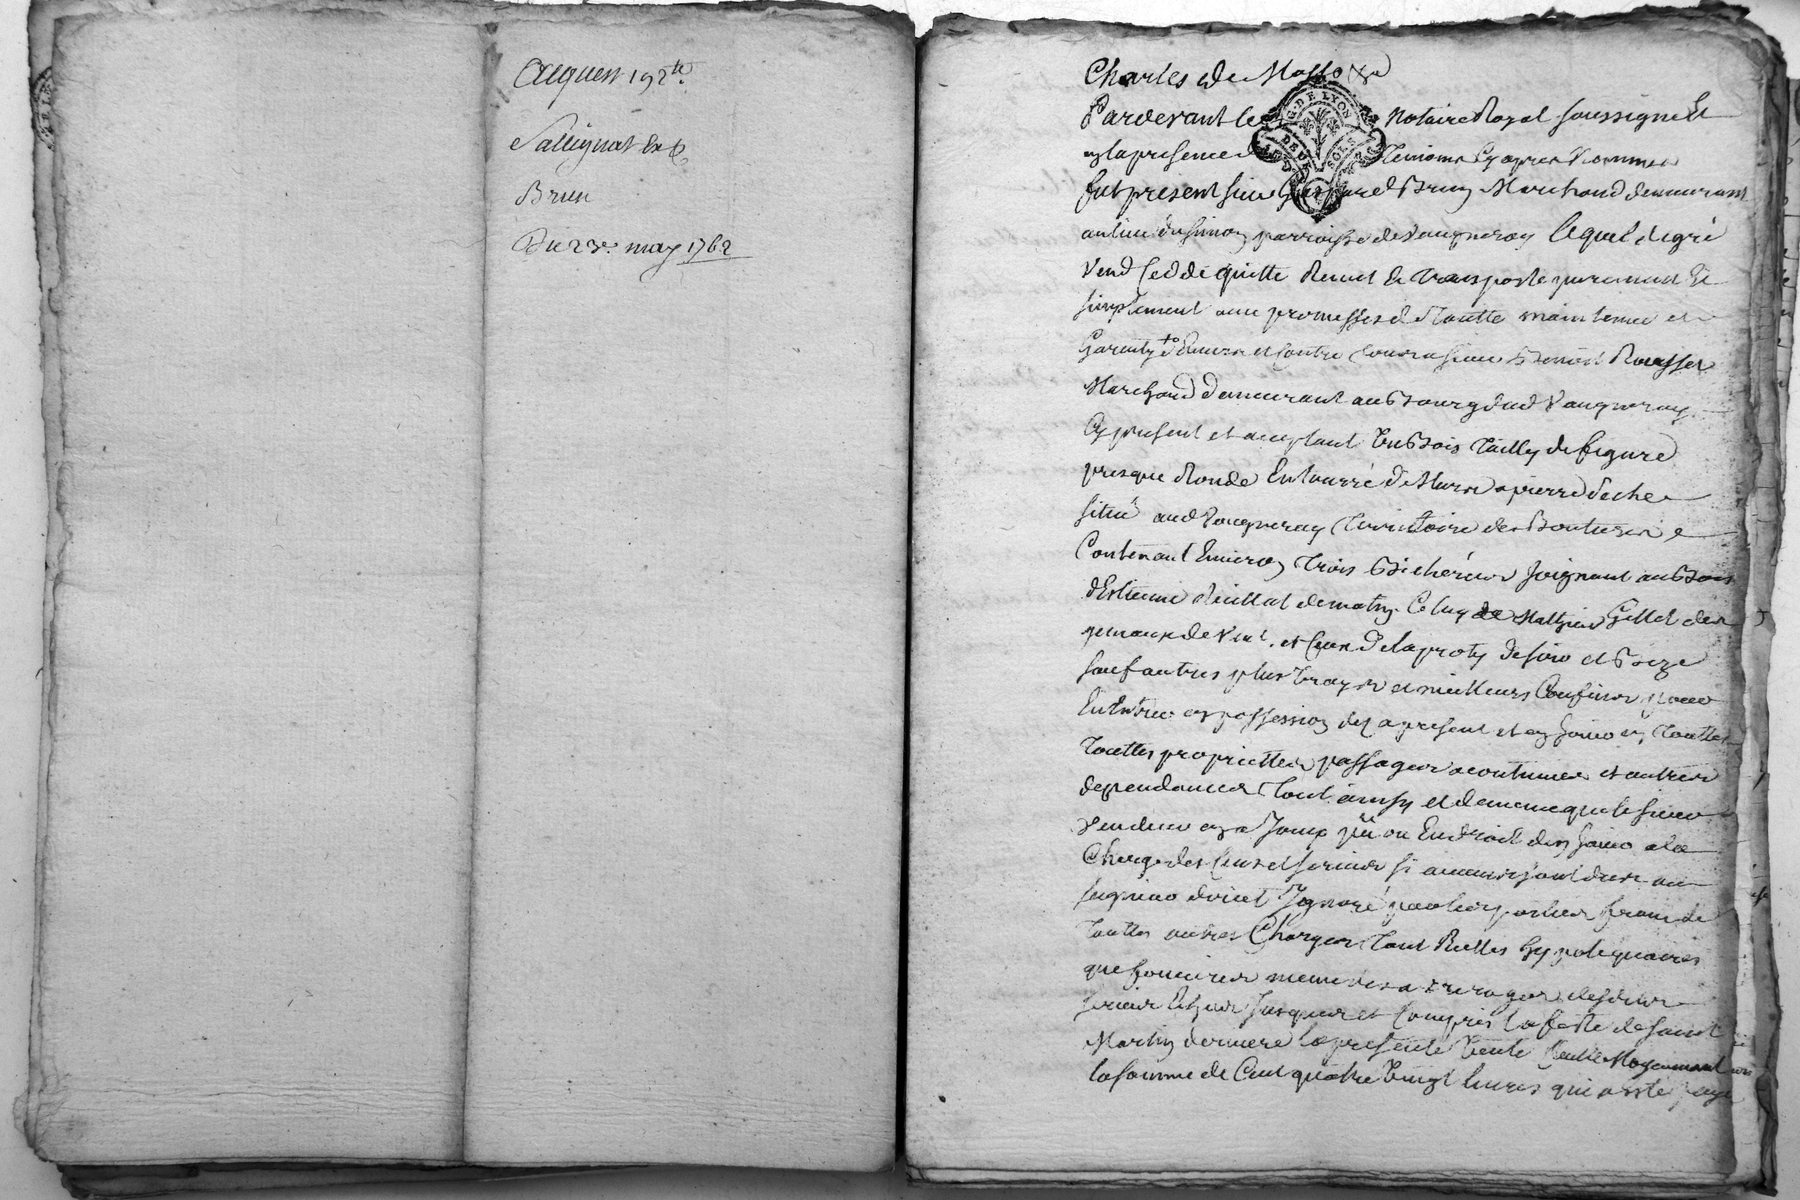 Brun
Du 23e. may 1762
Charles de Masso
G. DE LYON
DEUX SOLS
Pardevant le Notaire Royal soussigné Et
en la presence temoins Cy apres Nommes
fut present sieur Brun Marchand demeurant
au lieu du parroisse de Vaugneray lequel de gré
Vend Cedde quitte Remet & transporte purement Et
simplement avec promesses de toutte maintenue et
Garenty Envers et contre tous a sieur Benoist Rousset
Marchand demeurant au Bourg dud Vaugneray
Cy present et acceptant Un Bois tailly de figure
presque Ronde Entourré de Murs a pierre seche
situé aud Vaugneray territoire des
Contenant Environ trois Bicherées Joignant au Bois
d'Estienne Celuy de Matthieu Gillet des
de Vent. et Ceux de soir et Bize
sauf autres plus vrays et meilleurs Confins pour
Entrer en possession des a present et en Jouir en touttes
touttes proprietes passages accoutumes et autres
dependances tout ainsy et de meme que le sieur
Vendeur en a Jouy pû ou En droit d'en Jouir a la
Charge des Cens et servis si aucuns sont dus au
seigneur direct Ignoré par les parties franc de
touttes autres Charges tant Reelles hypotequaires
que foncieres meme des arrerages desdits
servis Echus Jusques et Compris la feste de saint
Martin derniere la presente Vente faitte Moyennant
la somme de Cent quatre Vingt livres qui a esté payé